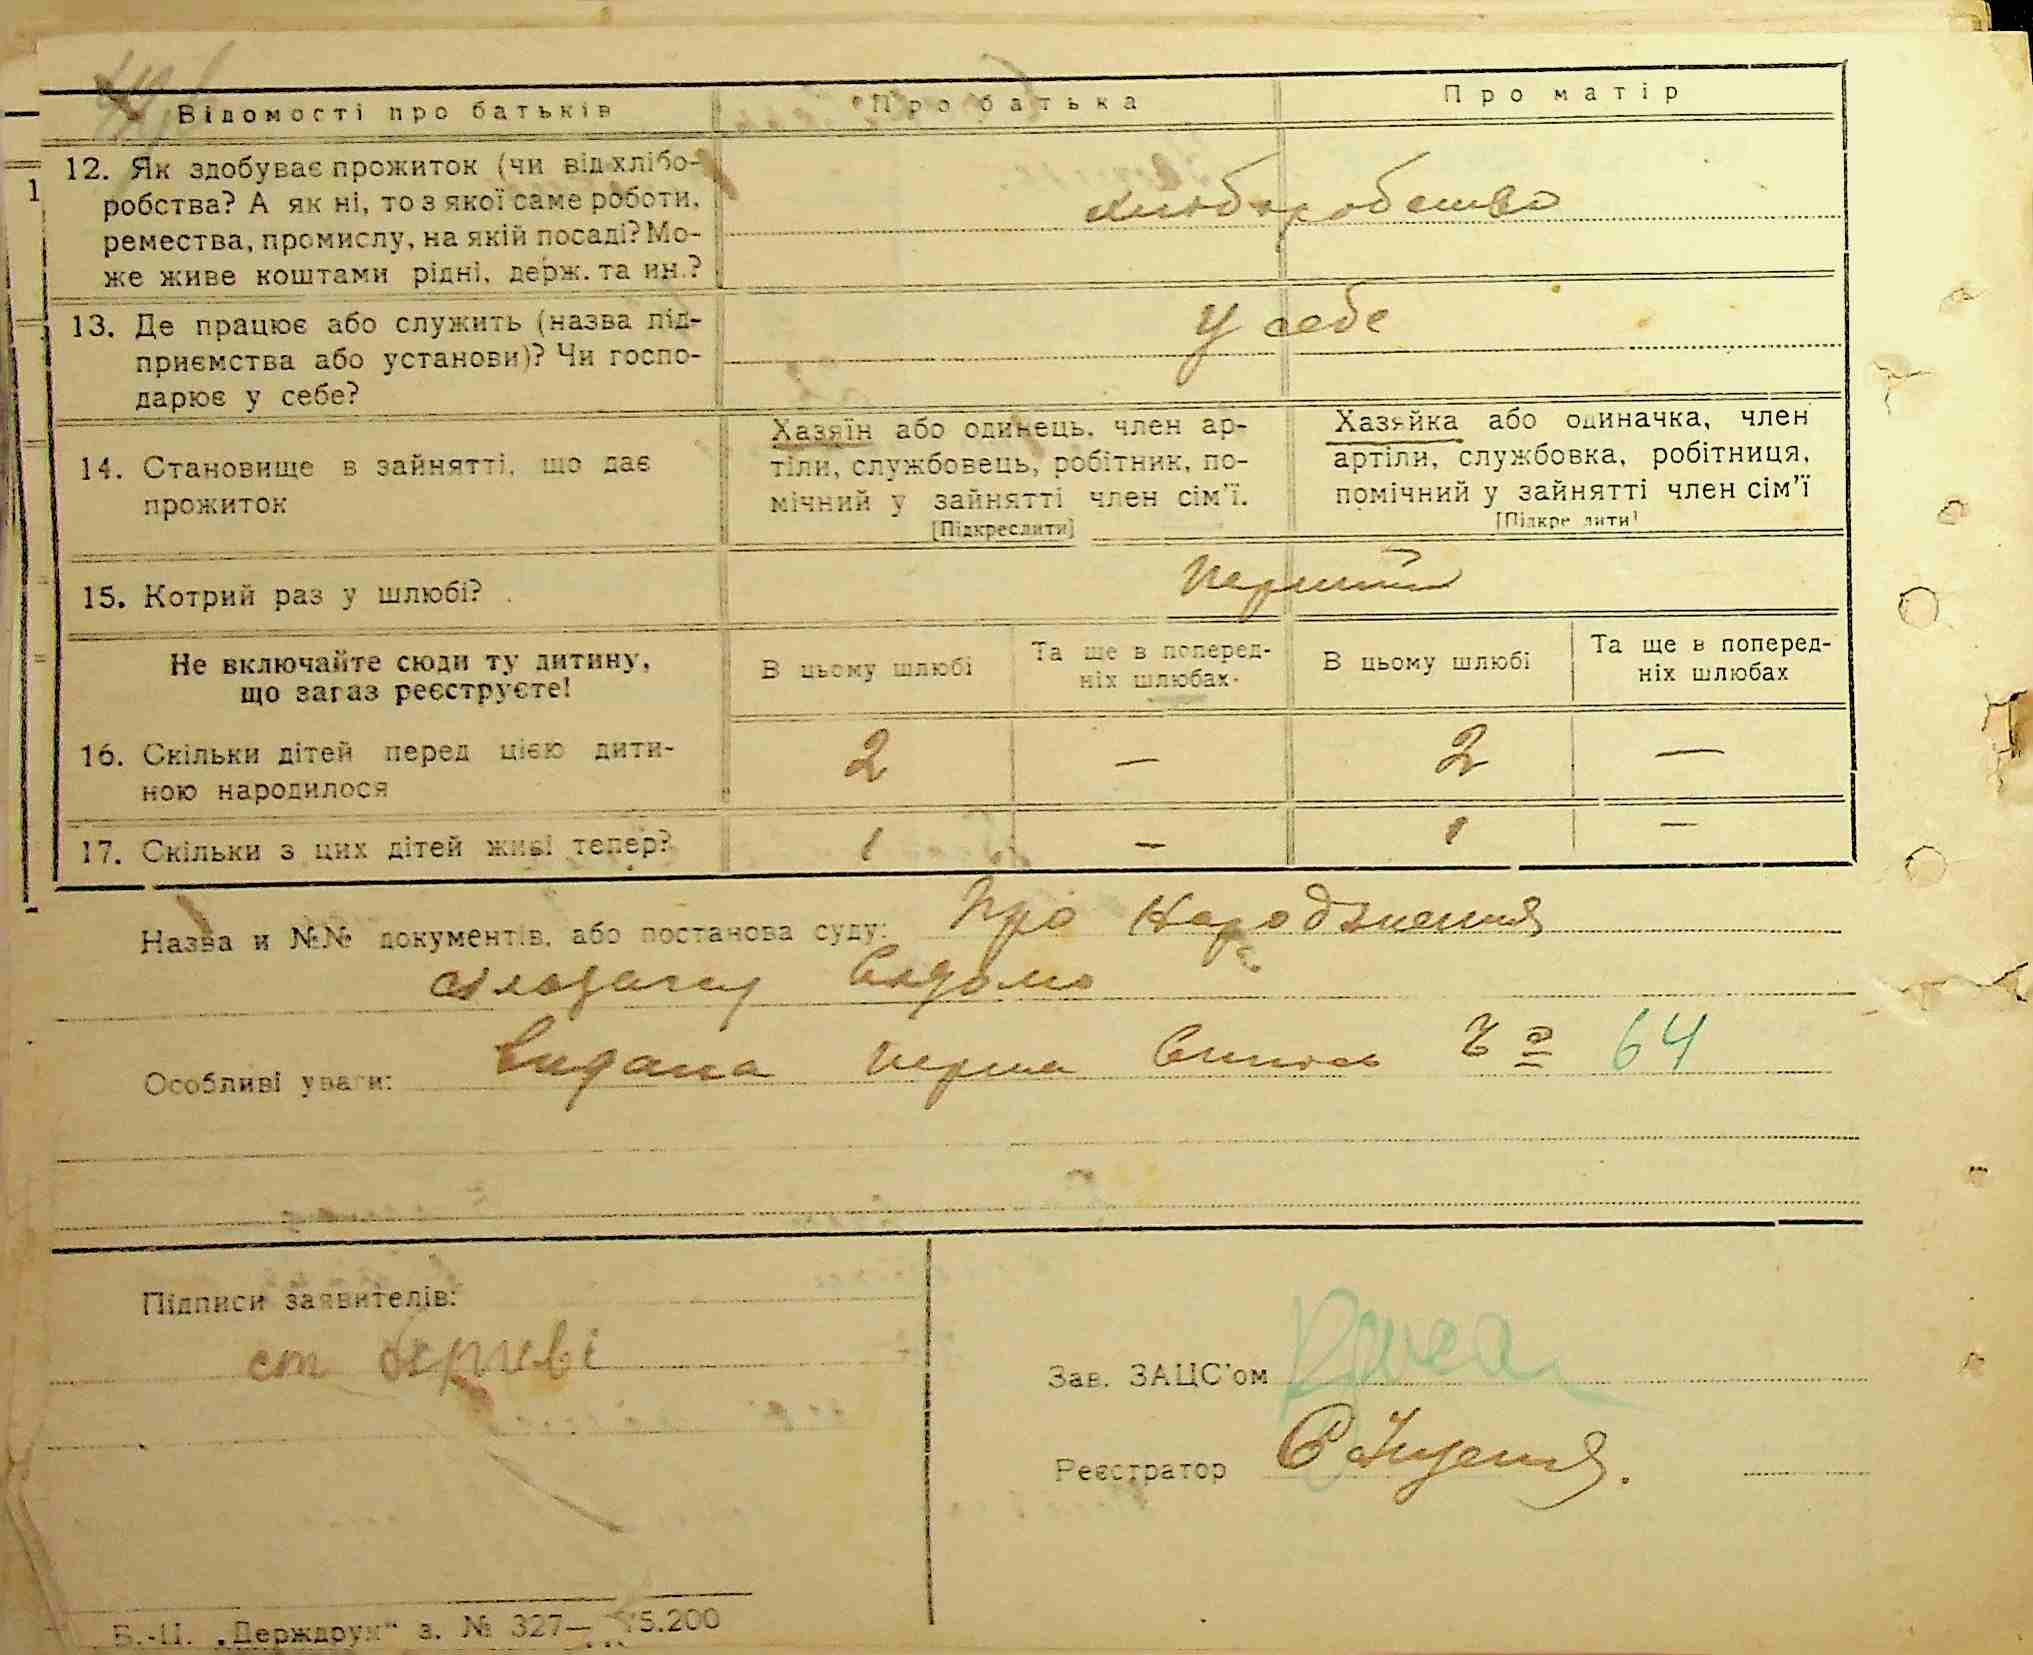 Відомості про батьків
Про батька
Про матір
12. Як здобуває прожиток (чи від хлібо-
робства? А як ні, то з якої саме роботи,
ремества, промислу, на якій посаді? Мо-
же живе коштами рідні, держ. та ин.?
хліборобство
13. Де працює або служить (назва під-
приємства або установи)? Чи госпо-
дарює у себе?
У себе
14. Становище в зайнятті, що дає
прожиток
Хазяїн або одинець, член ар-
тіли, службовець, робітник, по-
мічний у зайнятті член сім'ї.
[Підкреслити]
Хазяйка або одиначка, член
артіли, службовка, робітниця,
помічний у зайнятті член сім'ї
[Підкре лити]
15. Котрий раз у шлюбі?
перший
Не включайте сюди ту дитину,
що зараз реєструєте!
В цьому шлюбі
Та ще в поперед-
ніх шлюбах.
В цьому шлюбі
Та ще в поперед-
ніх шлюбах
16. Скільки дітей перед цією дити-
ною народилося
2 — 2 —
17. Скільки з цих дітей живі тепер?
1 — 1 —
Назва и №№ документів, або постанова суду: Про народження
відомо
Особливі уваги: Видана перша Випись 64
Підписи заявителів:
Зав. ЗАЦС'ом
Реєстратор
Б.-Ц. „Держдрук" з. № 327— 15.200
1